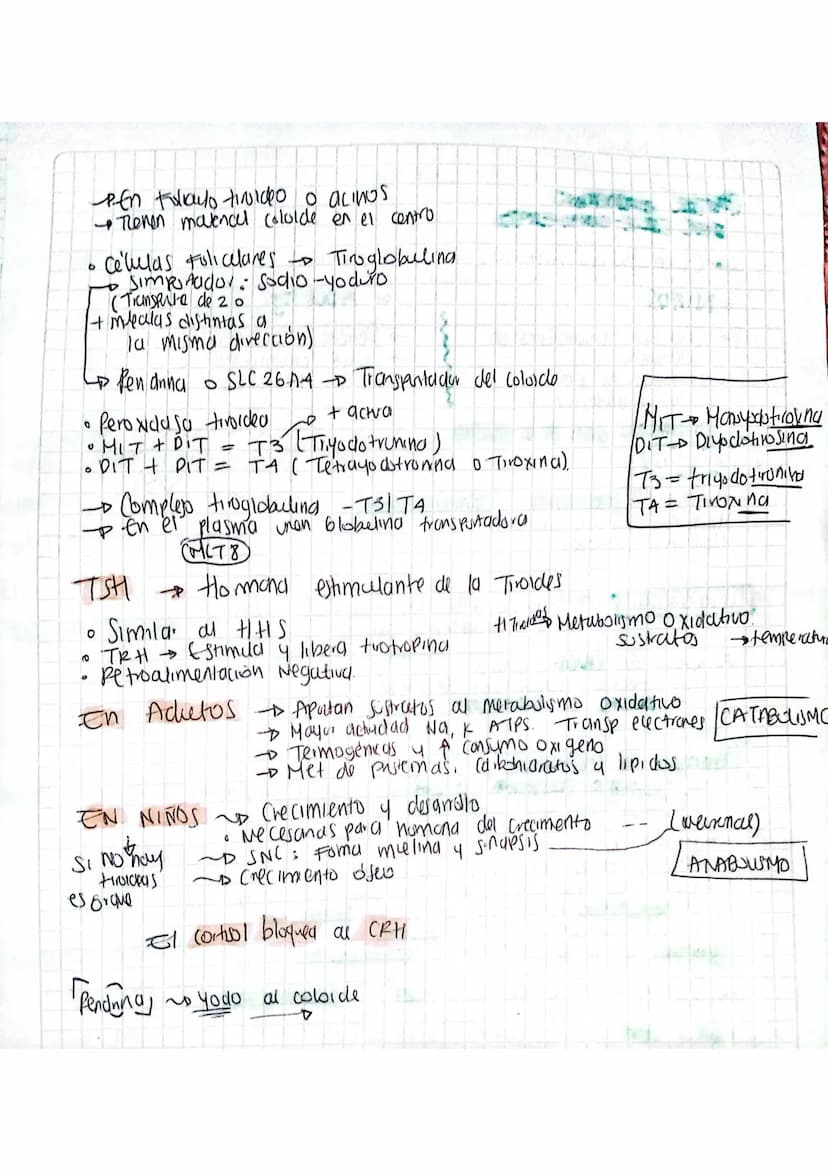 → En folículo tiroideo o acinos
→ Tienen material coloide en el centro
• Células foliculares → Tiroglobulina
→ Simportador: Sodio-yoduro
(Transporte de 2 o
+ moléculas distintas a
la misma dirección)
→ Pendrina o SLC26A4 → Transportador del coloide
• Peroxidasa tiroidea → + activa
• MIT + DIT = T3 (Triyodotronina)
• DIT + DIT = T4 (Tetrayodotronina o Tiroxina).
MIT →
DIT → Diyodotirosina
T3 = triyodotironina
T4 = Tiroxina
→ Complejo tiroglobulina - T3/T4
→ En el plasma unan Globulina transportadora
MCT8
TSH → Hormona estimulante de la Tiroides
• Similar al HHS
H Tiroides → Metabolismo Oxidativo
sustratos → temperatura
• TRH → Estimula y libera tirotropina
• Retroalimentación Negativa.
En Adultos → Aportan sustratos al metabolismo oxidativo
→ Mayor actividad Na, K ATPS. Transp electrones
CATABOLISMO
→ Termogénicas y ↑ consumo oxigeno
→ Met de proteinas, carbohidratos y lipidos
EN NIÑOS → Crecimiento y desarrollo
• Necesarias para hormona del crecimiento --
→ SNC: Forma mielina y sinapsis
→ Crecimiento óseo
ANABOLISMO
Si no hay
tiroideas
es órque
El cortisol bloquea al CRH
Pendrina → Yodo al coloide